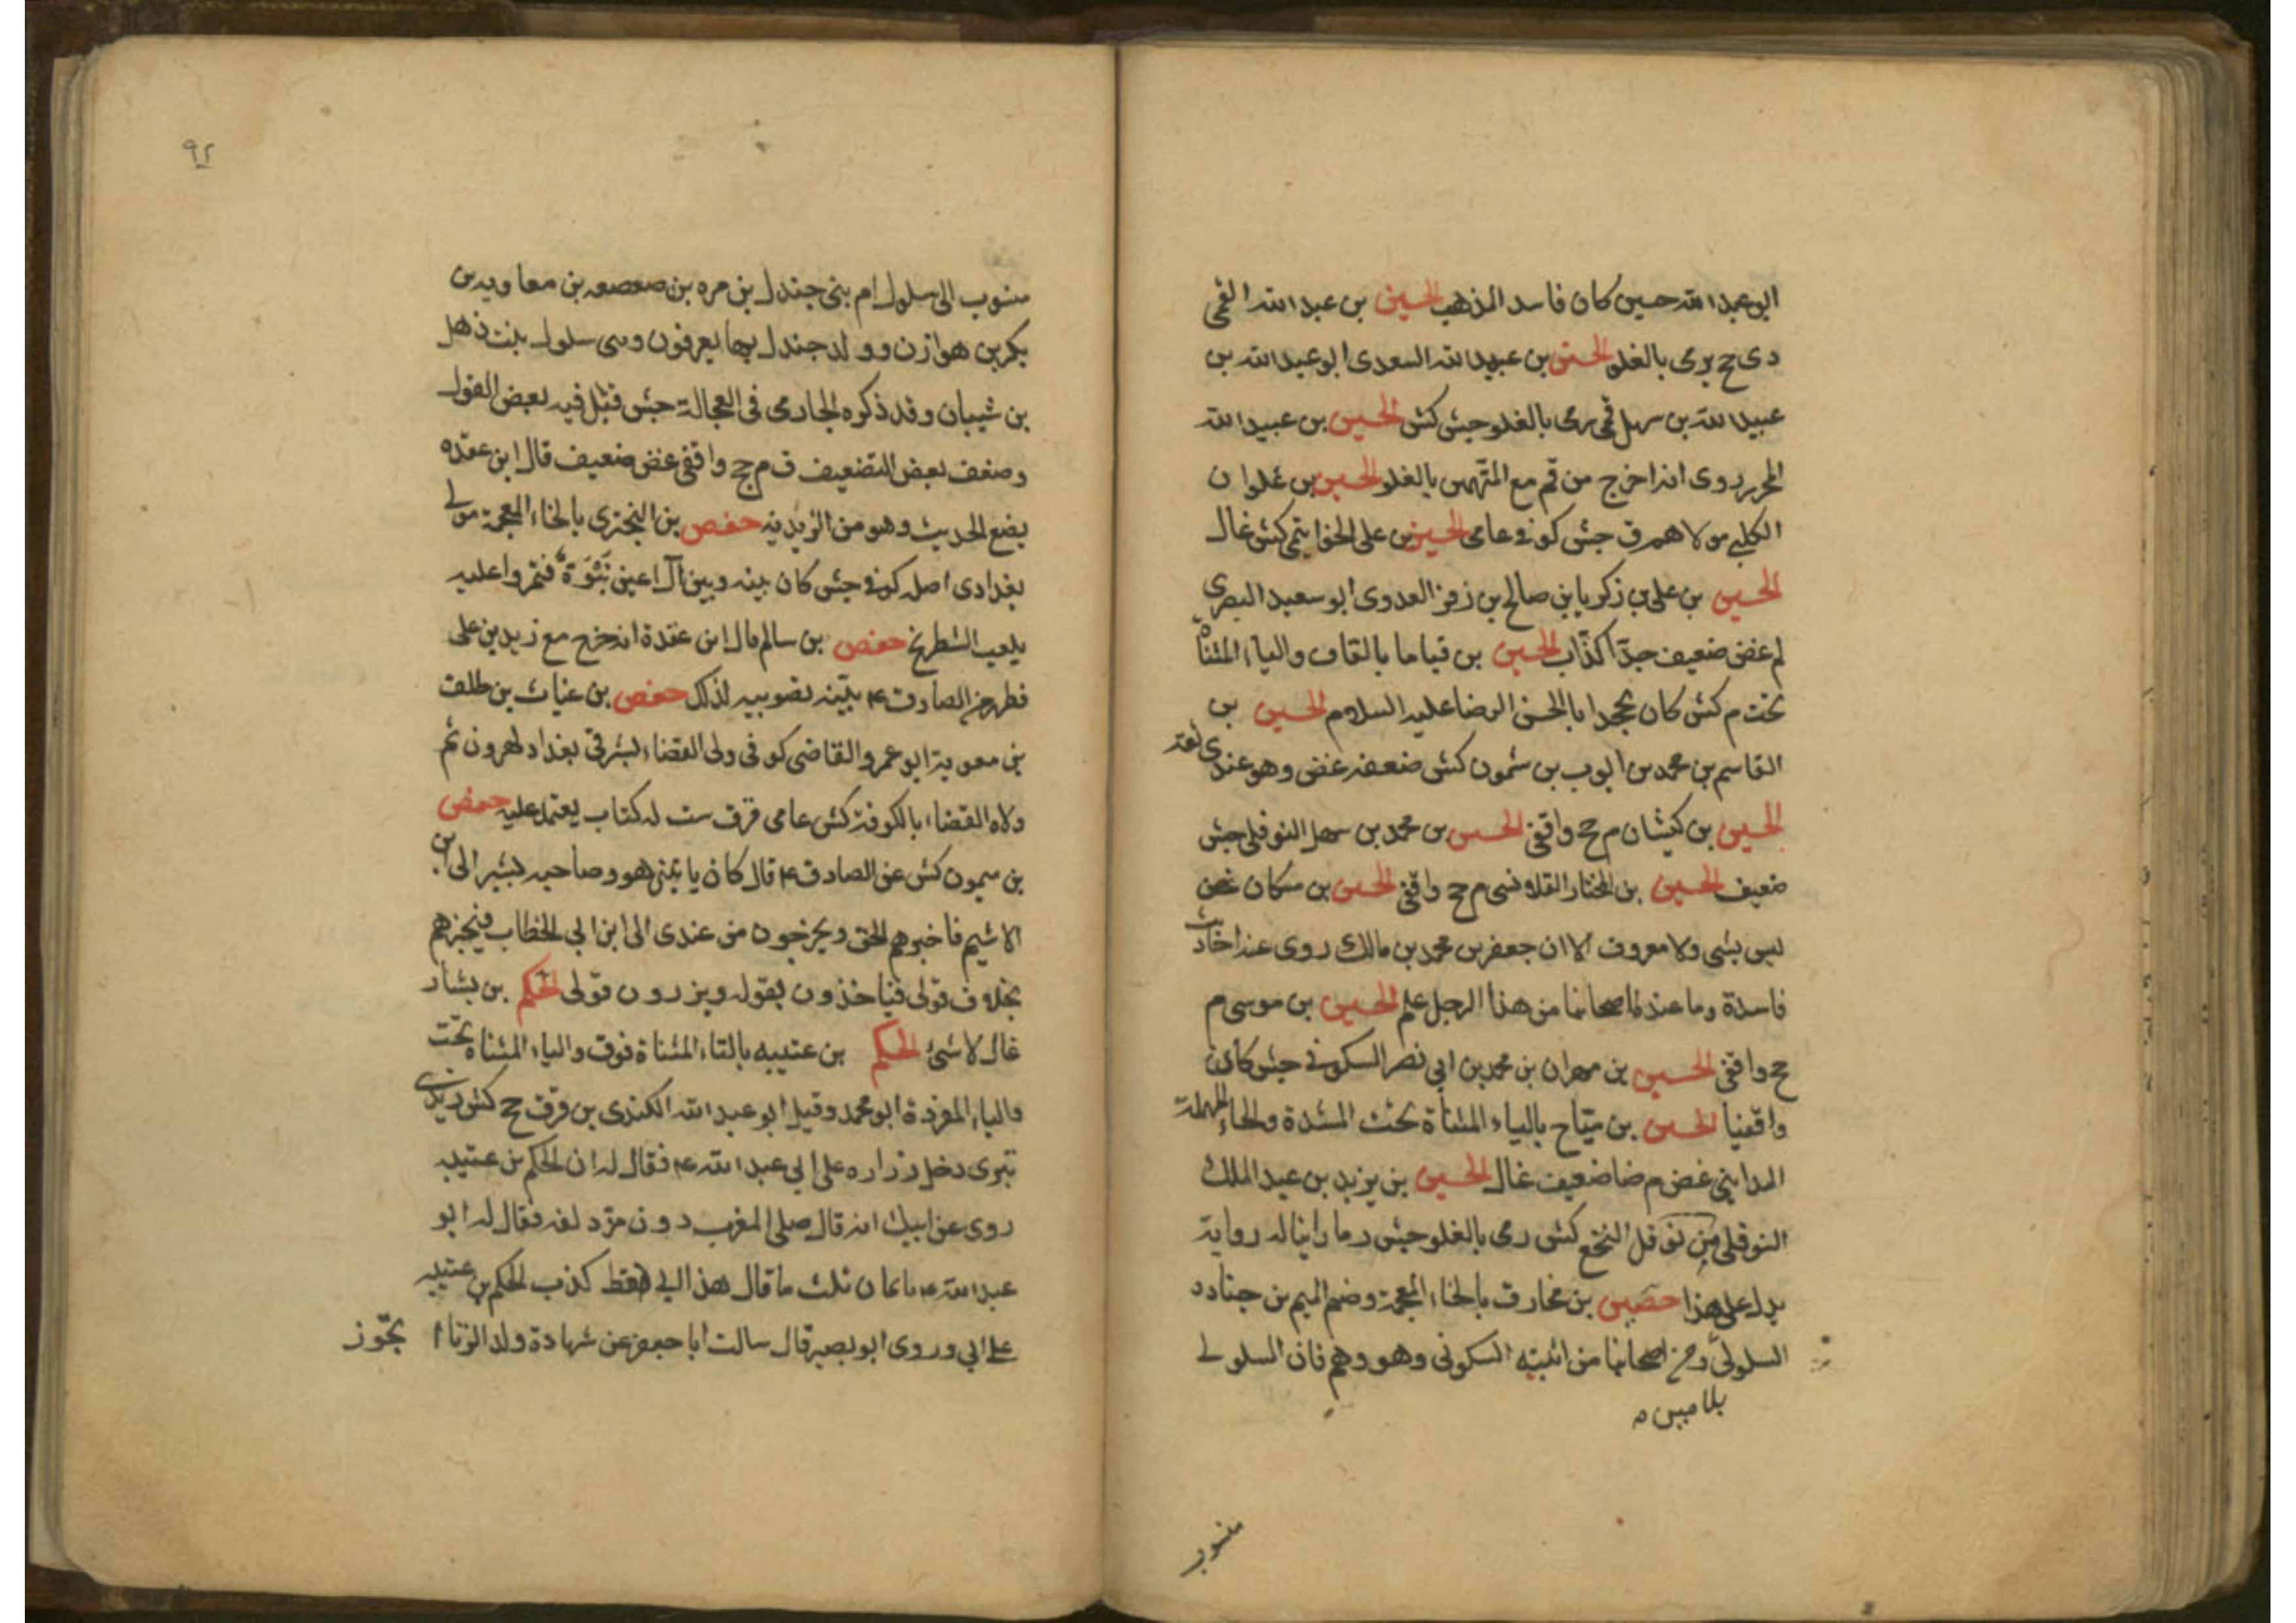 ابو عبد الله حسين كان فاسد المذهب الحسين بن عبد الله القمى
دى ج يرمى بالغلو الحسين بن عبيد الله السعدى ابو عبد الله بن
عبيد الله بن سهل قمى رمى بالغلو جش كش الحسين بن عبيد الله
المحرر روى انه اخرج من قم مع المتهمين بالغلو الحسين بن علوان
الكلبى مولاهم ق جش كوفى عامى الحسين بن على الخواتيمى كش غال
الحسين بن على بن زكريا بن صالح بن زفر العدوى ابو سعيد البصرى
لم غض ضعيف جدا كذاب الحسين بن قياما بالقاف والياء المثناة
تحت م كش كان يجحد ابا الحسن الرضا عليه السلام الحسين بن
القاسم بن محمد بن ايوب بن شمون كش ضعفه غض وهو عندى ثقة
الحسين بن كيشان م ج واقفى الحسين بن محمد بن سهل النوفلى جش
ضعيف الحسين بن المختار القلانسى م ج واقفى الحسين بن مسكان غض
ليس بشى ولا معروف الا ان جعفر بن محمد بن مالك روى عنه احاديث
فاسدة وما عند اصحابنا من هذا الرجل علم الحسين بن موسى م
ج واقفى الحسين بن مهران بن محمد بن ابى نصر السكونى جش كان
واقفيا الحسين بن مياح بالياء المثناة تحت المشددة والحاء المهملة
المداينى غض م ضا ضعيف غال الحسين بن يزيد بن عبد الملك
النوفلى من نوفل النخع كش رمى بالغلو جش وما راينا له رواية
يدل على هذا حصين بن مخارق بالخاء المعجمة وضم الميم بن جناده
السلولى ومن اصحابنا من اثبته السكونى وهو وهم فان السلولى
منسوب
٩٢
منسوب الى سلول ام بنى جندل بن مره بن صعصعه بن معاويه بن
بكر بن هوازن وولد جندل بها يعرفون وهى سلول بنت ذهل
بن شيبان وقد ذكره الحازمى فى العجالة جش قيل فيه بعض القول
وضعف بعض التضعيف ق م ج واقفى غض ضعيف قال ابن عقده
يضع الحديث وهو من الزيديه حفص بن البخترى بالخاء المعجمة مولى
بغدادى اصله كوفى جش كان بينه وبين آل اعين نبوة فغمزوا عليه
بلعب الشطرنج حفص بن سالم قال ابن عقدة انه خرج مع زيد بن على
فظهر من الصادق ع تصويبه لذلك حفص بن غياث بن طلق
بن معوية ابو عمرو القاضى كوفى ولى القضاء بشرقى بغداد لهرون ثم
ولاه القضاء بالكوفة كش عامى قرق ست له كتاب يعتمد عليه حفص
بن ميمون كش عن الصادق ع قال كان ياتينى هو وصاحبه ليشير الى ابن
الاشيم فاخبرهم الحق ويخرجون من عندى الى ابن ابى الخطاب فيخبرهم
بخلاف قولى فياخذون بقوله ويذرون قولى الحكم بن بشار
غال لا شئ الحكم بن عتيبه بالتاء المثناة فوق والياء المثناه تحت
والباء المفردة ابو محمد وقيل ابو عبد الله الكندى بن قرق ج كش زيدى
بترى دخل زراره على ابى عبد الله ع فقال له ان الحكم بن عتيبه
روى عن ابيك انه قال صلى المغرب دون مزدلفه فقال له ابو
عبد الله ع بايمان ثلث ما قال هذا ابى قط كذب الحكم بن عتيبه
على ابى وروى ابو بصير قال سالت ابا جعفر عن شهادة ولد الزنا ا تجوز